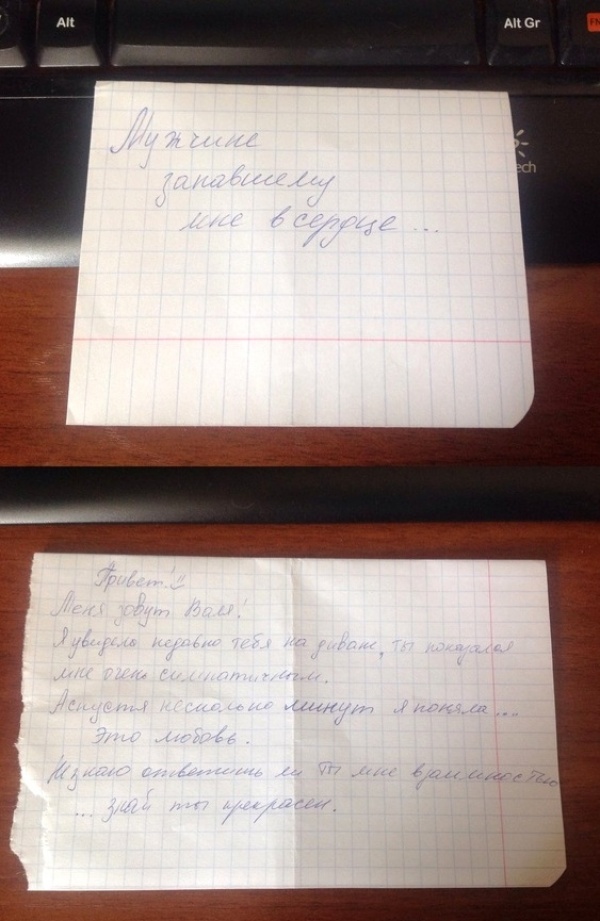 Alt
Alt Gr
FN
tech
Мужчине
запавшему
мне в сердце...
Привет!
Меня зовут Валя!
Я увидела недавно тебя на диване, ты показался
мне очень симпатичным.
А спустя несколько минут я поняла...
Это любовь.
Не знаю ответишь ли ты мне взаимностью
... знай ты прекрасен.